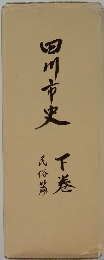 四川市史
下巻
民俗篇